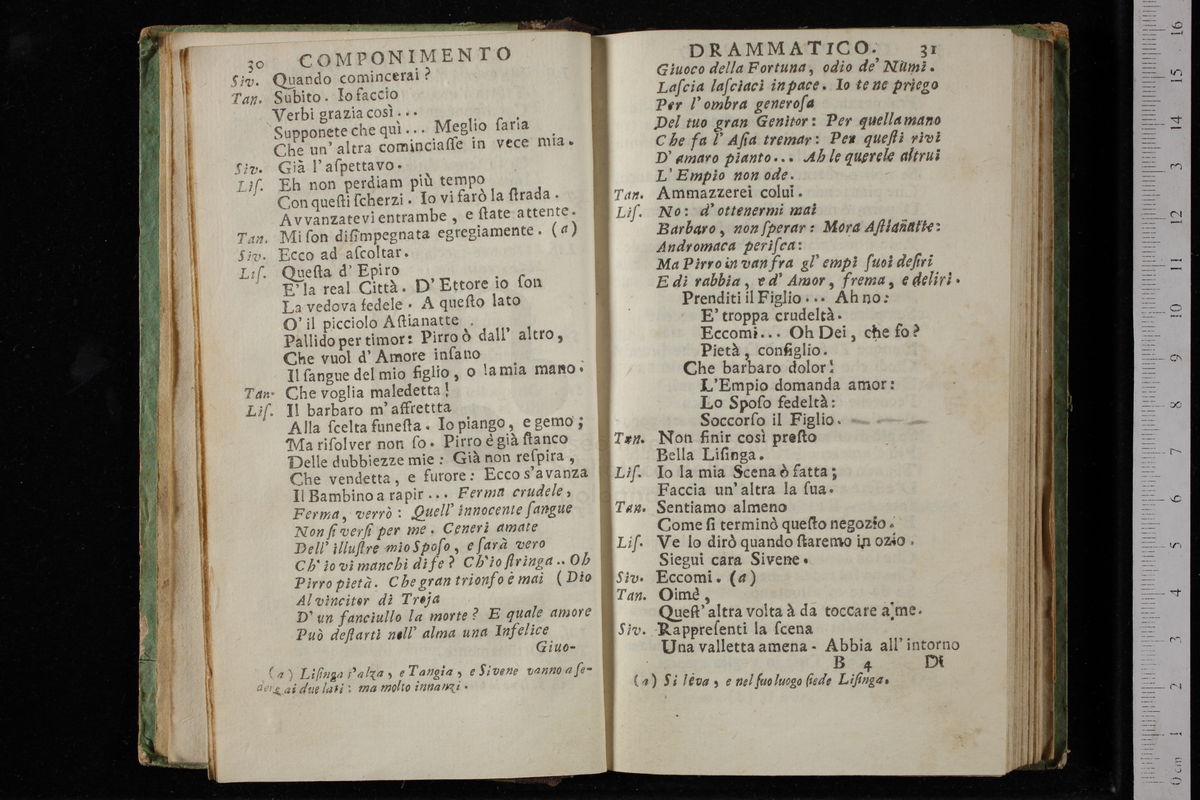 30 COMPONIMENTO
Siv. Quando comincerai?
Tan. Subito. Io faccio
Verbi grazia così...
Supponete che quì... Meglio saria
Che un' altra cominciasse in vece mia.
Siv. Già l' aspettavo.
Lis. Eh non perdiam più tempo
Con questi scherzi. Io vi farò la strada.
Avvanzatevi entrambe, e state attente.
Tan. Mi son disimpegnata egregiamente. (a)
Siv. Ecco ad ascoltar.
Lis. Questa d' Epiro
E' la real Città. D' Ettore io son
La vedova fedele. A questo lato
O' il picciolo Astianatte
Pallido per timor: Pirro ò dall' altro,
Che vuol d' Amore insano
Il sangue del mio figlio, o la mia mano.
Tan. Che voglia maledetta!
Lis. Il barbaro m' affrettta
Alla scelta funesta. Io piango, e gemo;
Ma risolver non so. Pirro è già stanco
Delle dubbiezze mie: Già non respira,
Che vendetta, e furore: Ecco s'avanza
Il Bambino a rapir... Ferma crudele,
Ferma, verrò: Quell' innocente sangue
Non si versi per me. Ceneri amate
Dell' illustre mio Sposo, e sarà vero
Ch' io vi manchi di fe? Ch'io stringa.. Oh
Pirro pietà. Che gran trionfo è mai (Dio
Al vincitor di Troja
D' un fanciullo la morte? E quale amore
Può destarti nell' alma una Infelice
Giuo-
(a) Lisinga s'alza, e Tangia, e Sivene vanno a se-
dere ai due lati: ma molto innanzi.
DRAMMATICO. 31
Giuoco della Fortuna, odio de' Numi.
Lascia lasciaci in pace. Io te ne priego
Per l' ombra generosa
Del tuo gran Genitor: Per quella mano
Che fa l' Asia tremar: Per questi rivi
D' amaro pianto... Ah le querele altrui
L' Empio non ode.
Tan. Ammazzerei colui.
Lis. No: d' ottenermi mai
Barbaro, non sperar: Mora Astianatte:
Andromaca perisca:
Ma Pirro in van fra gl' empi suoi desiri
E di rabbia, e d' Amor, frema, e deliri.
Prenditi il Figlio... Ah no:
E' troppa crudeltà.
Eccomi... Oh Dei, che fo?
Pietà, consiglio.
Che barbaro dolor!
L'Empio domanda amor:
Lo Sposo fedeltà:
Soccorso il Figlio.
Tan. Non finir così presto
Bella Lisinga.
Lis. Io la mia Scena ò fatta;
Faccia un'altra la sua.
Tan. Sentiamo almeno
Come si terminò questo negozio.
Lis. Ve lo dirò quando staremo in ozio.
Siegui cara Sivene.
Siv. Eccomi. (a)
Tan. Oimè,
Quest' altra volta à da toccare a me.
Siv. Rappresenti la scena
Una valletta amena. Abbia all' intorno
B 4 Di
(a) Si leva, e nel suo luogo siede Lisinga.